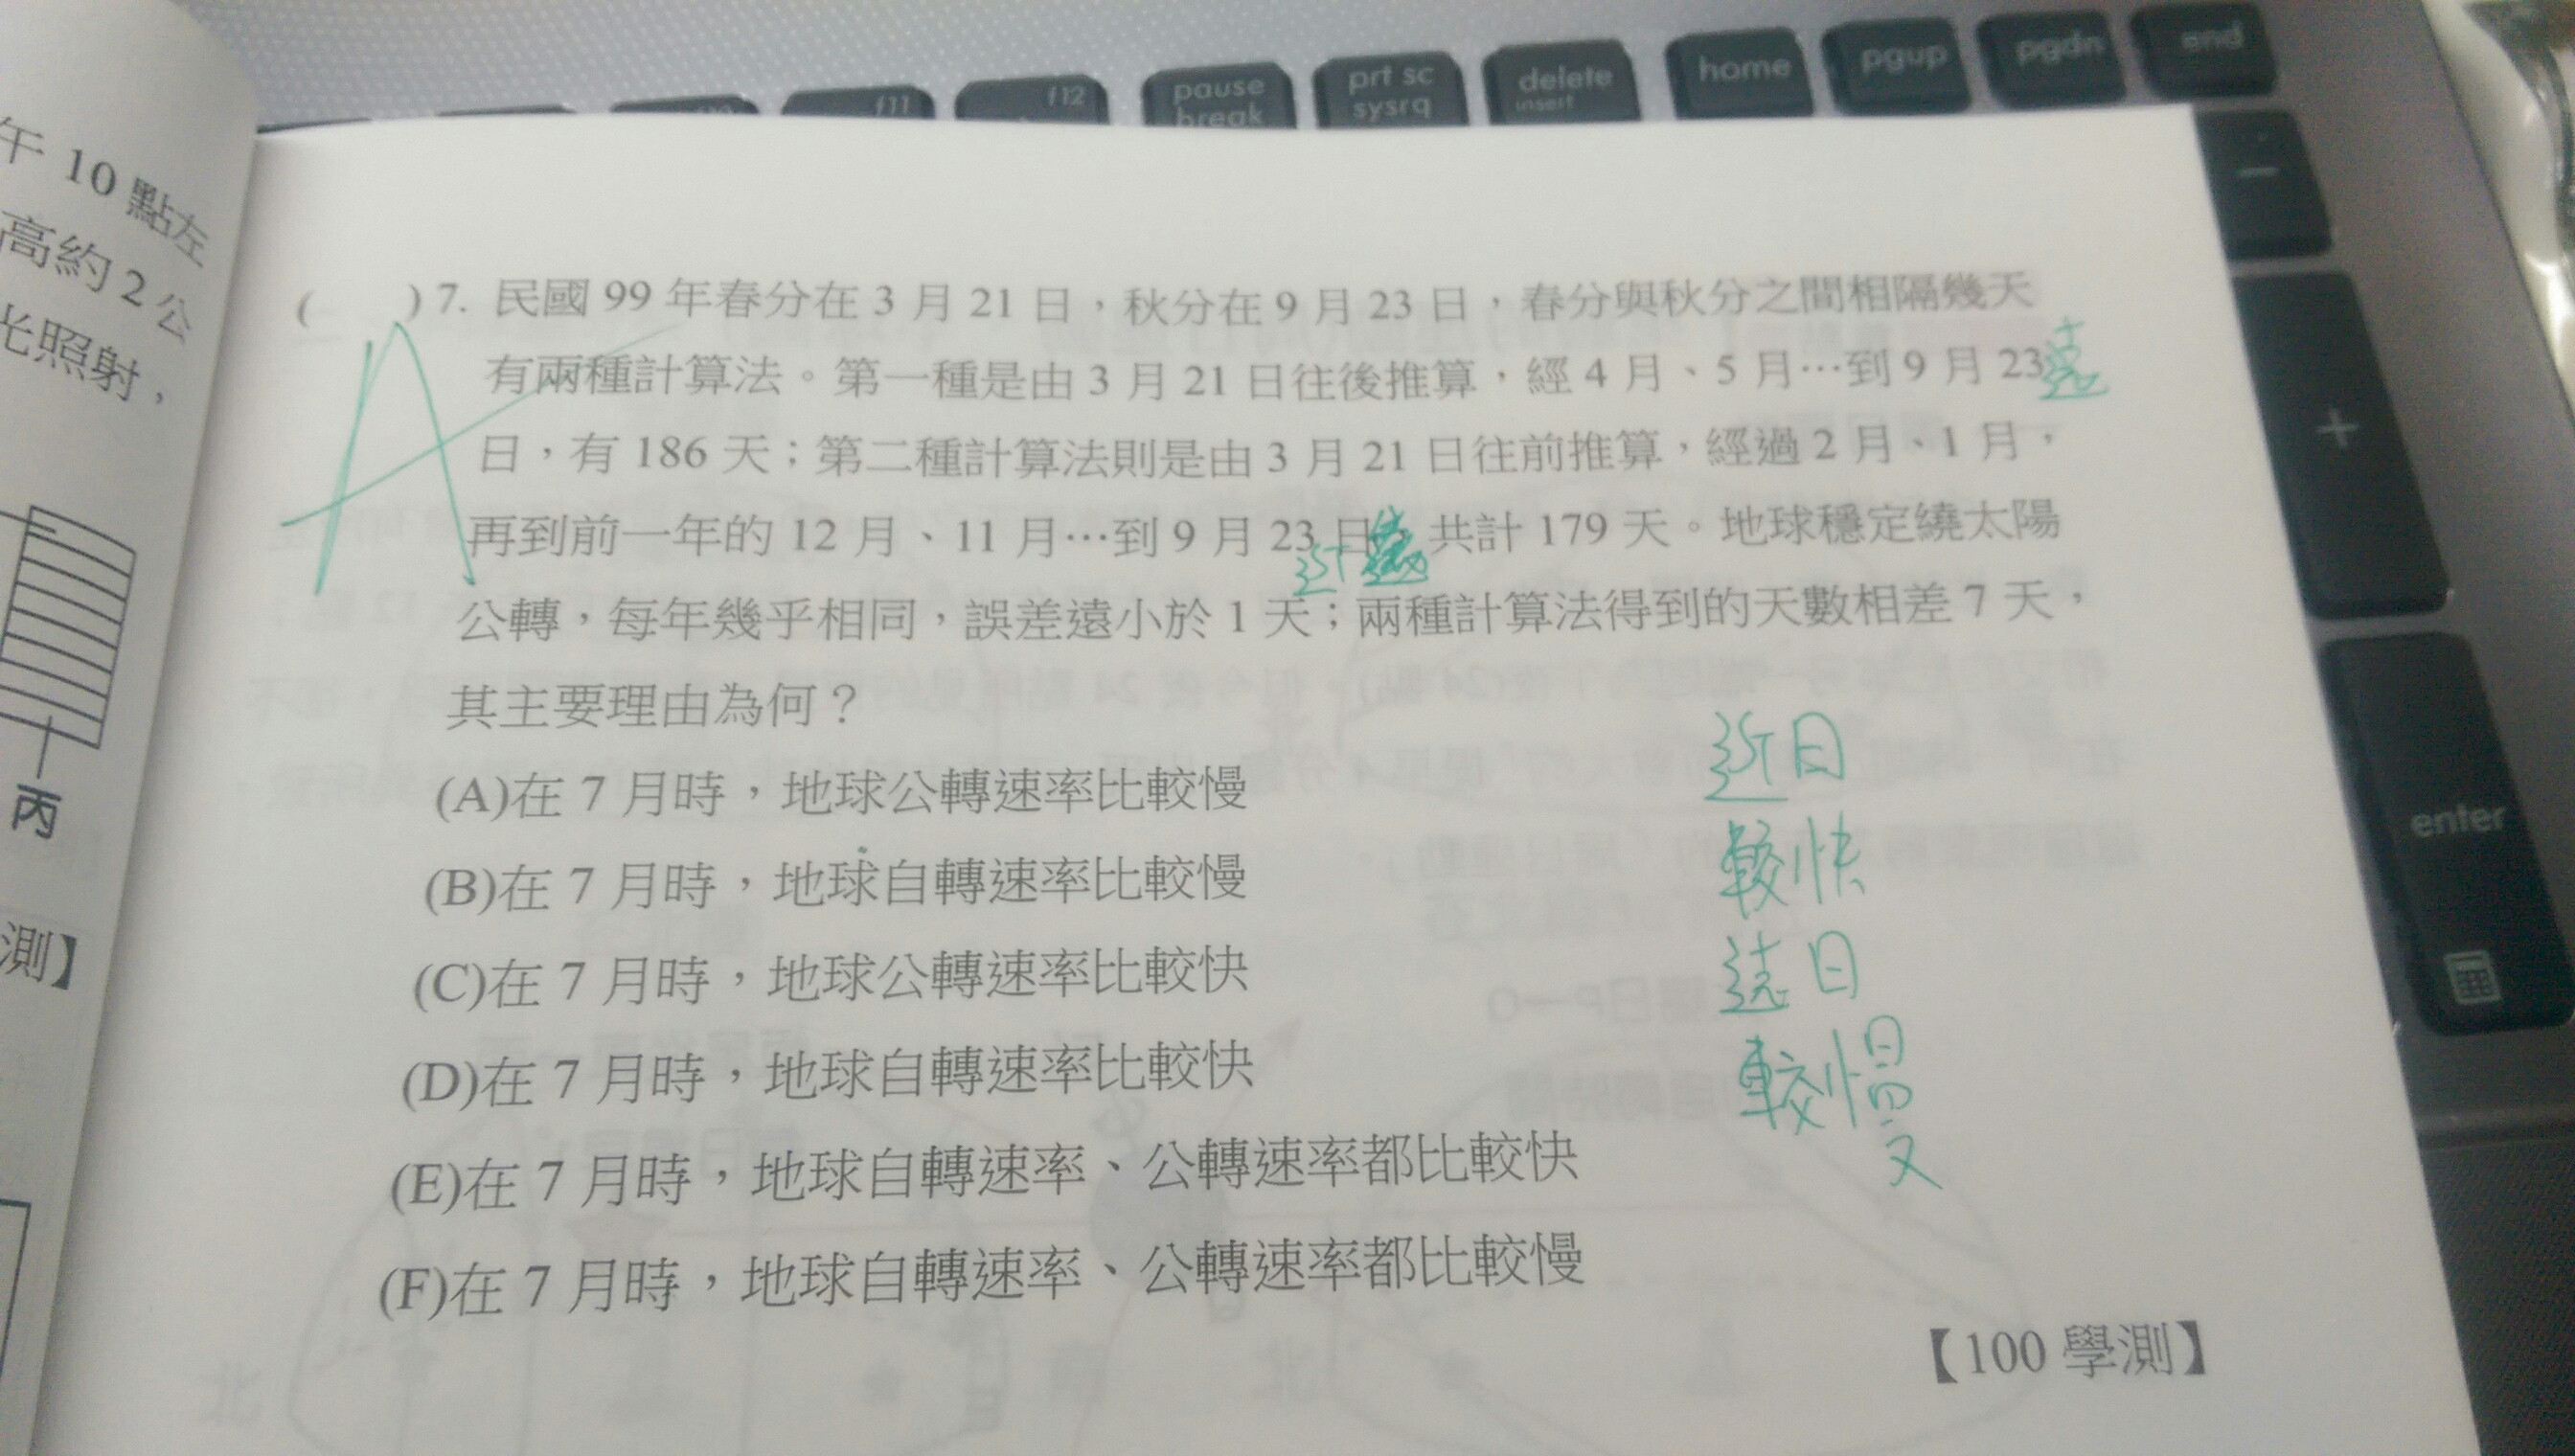 f11
f12
pause
break
prt sc
sysrq
delete
insert
home
pgup
pgdn
end
+
enter
午 10 點左
高約 2 公
光照射，
丙
測】
( ) 7. 民國 99 年春分在 3 月 21 日，秋分在 9 月 23 日，春分與秋分之間相隔幾天
有兩種計算法。第一種是由 3 月 21 日往後推算，經 4 月、5 月…到 9 月 23
遠
日，有 186 天；第二種計算法則是由 3 月 21 日往前推算，經過 2 月、1 月，
再到前一年的 12 月、11 月…到 9 月 23 日，共計 179 天。地球穩定繞太陽
近
公轉，每年幾乎相同，誤差遠小於 1 天；兩種計算法得到的天數相差 7 天，
其主要理由為何？
A
(A)在 7 月時，地球公轉速率比較慢
(B)在 7 月時，地球自轉速率比較慢
(C)在 7 月時，地球公轉速率比較快
(D)在 7 月時，地球自轉速率比較快
(E)在 7 月時，地球自轉速率、公轉速率都比較快
(F)在 7 月時，地球自轉速率、公轉速率都比較慢
近日
較快
遠日
較慢
【100 學測】